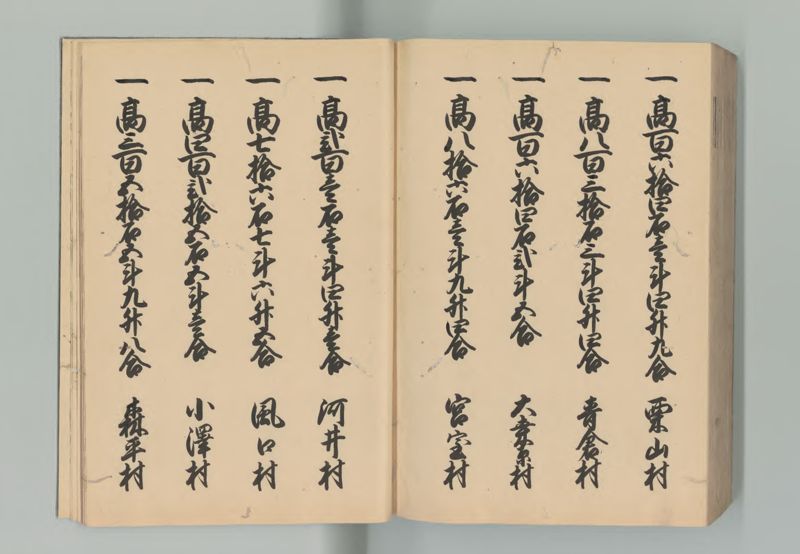 一高百六拾四石壱斗四升九合 栗山村
一高八百三拾石三斗四升四合 青倉村
一高百六拾四石弐斗五合 大桑原村
一高八拾六石壱斗九升四合 宮室村
一高弐百壱石壱斗四升壱合 河井村
一高七拾六石七斗六升五合 風口村
一高四百弐拾五石五斗壱合 小澤村
一高三百五拾石五斗九升八合 森平村